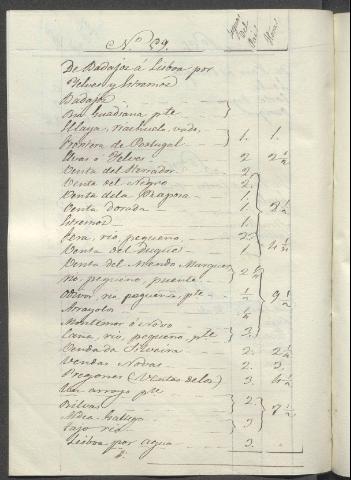 Nº 59.
De Badajoz á Lisboa por
Yelves y Estremoz
Badajoz
Rio Guadiana pte
frontera de Portugal 1. 1.
Elvas ó Yelves 2. 2 1/2
Venta del 2.
Venta del Negro 2.
Venta dela 1.
Venta Dorada 1. 8 1/2
Estremoz 1.
Tera, rio pequeño
Venta del Duque 1. 4 1/2
Venta del
rio pequeño, puente
rio pequeño, pte 1/2 9 1/2
Arrayolos
Montemor ó Novo
Cana, rio pequeño, pte 3.
Venda da Silveira 2. 2 1/2
Vendas Novas 2. 2.
Pregones (Ventas delos) 3. 4 1/2
Un arroyo pte
Rilvas 2.
Aldea Gallego 7 1/2
Tajo rio 3.
Lisboa por agua 3.